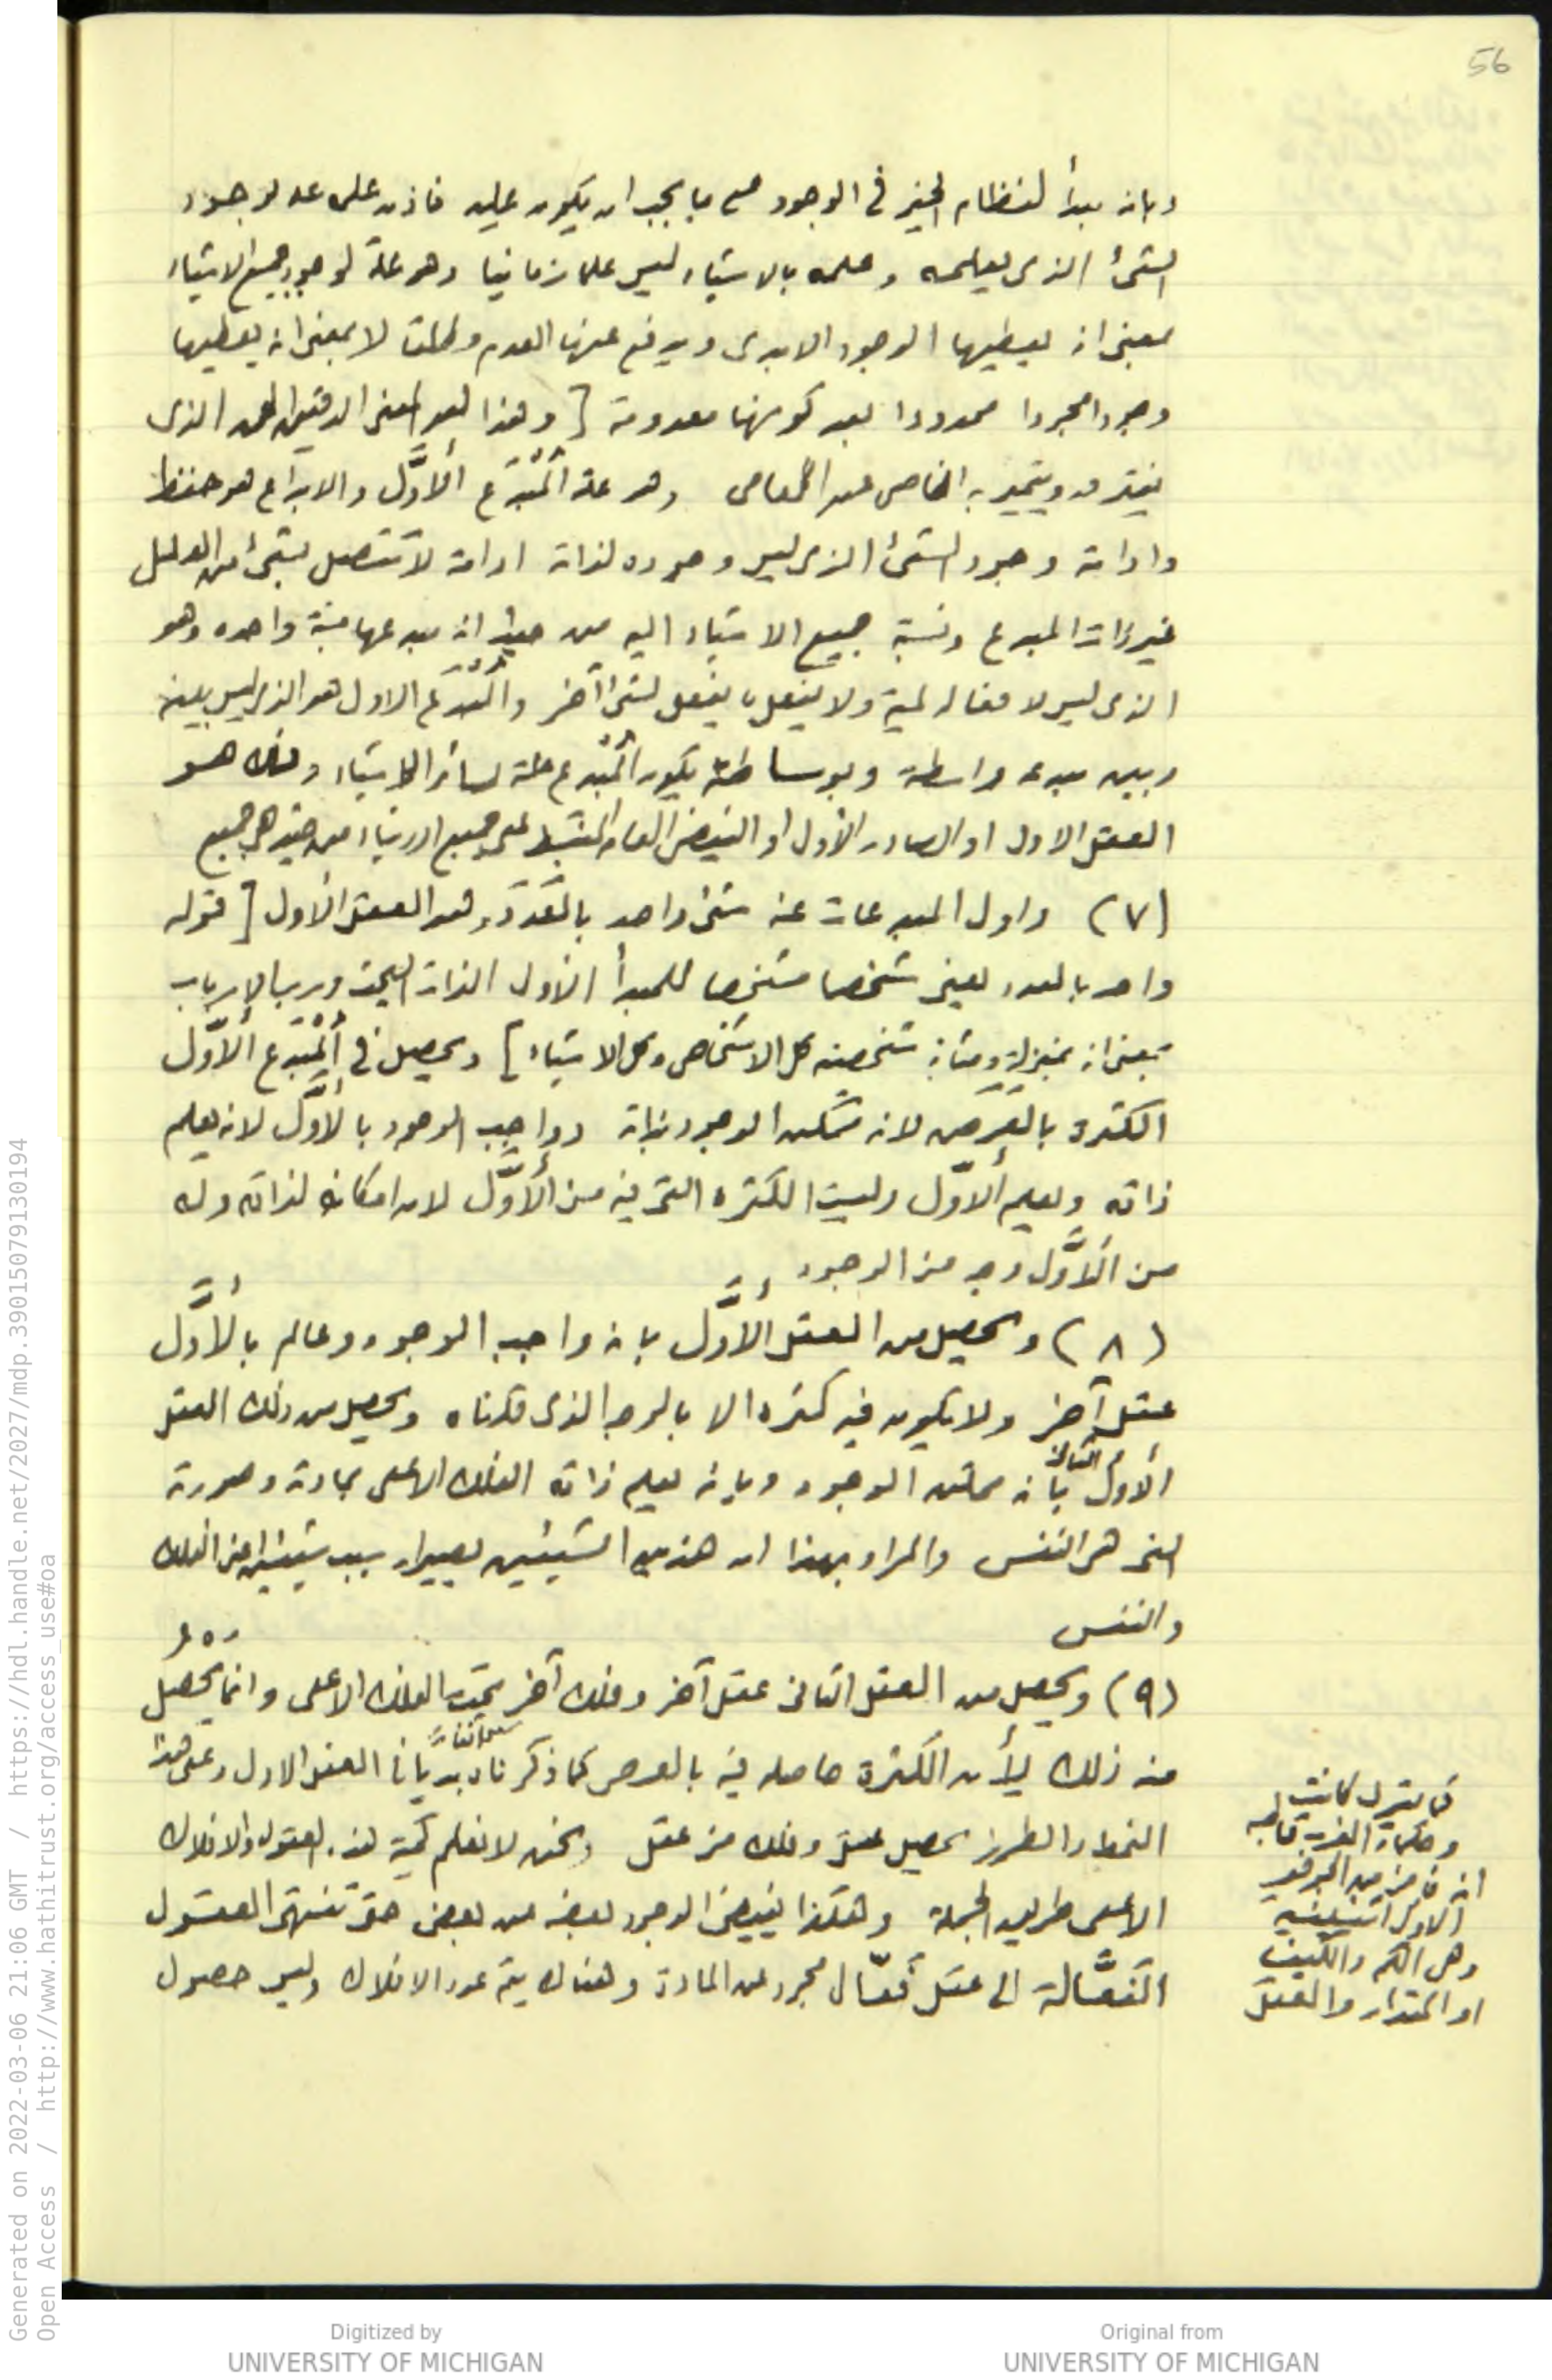 56
وبانه مبدأ لنظام الخير في الوجود على ما يجب ان يكون عليه فاذن علمه علة لوجود
الشئ الذى يعلمه وعلمه بالاشياء ليس علما زمانيا وهو علة لوجود جميع الاشياء
بمعنى انه يعطيها الوجود الابدى ويدفع عنها العدم مطلقا لا بمعنى انه يعطيها
وجودا مجردا محدودا بعد كونها معدومة [ وهذا هو المعنى الدقيق الذى
ويتميز به الخاص عن العامى وهو علة المُبْدَع الأوَّل والابداع هو حفظ
وادامة وجود الشئ الذى ليس وجوده لذاته ادامة لا تتصل بشئ من العلل
غير ذات المبدع ونسبة جميع الاشياء اليه من حيث انه مبدعها نسبة واحده وهو
الذى ليس لافعاله لمية ولا يفعل ما يفعل لشئ آخر والمُبْدَع الاول هو الذى ليس بينه
وبين مبدعه واسطة وبوساطته يكون المُبْدَع علة لسائر الاشياء وذلك هو
العقل الاول او الصادر الأول او الفيض العام المنبسط على جميع الاشياء من حيث هي جميع
(٧) واول المبدعات عنه شئ واحد بالعَدَد وهو العقل الأول [ قوله
واحد بالعدد يعنى شخصا مشخصا للمبدأ الأول الذات البحت ورب الارباب
بمعنى انه بمنزلة ومثابة شخصيته كل الاشخاص وكل الاشياء ] ويحصل في المُبْدَع الأوَّل
الكثرة بالعَرَض لانه ممكن الوجود بذاته وواجب الوجود بالأوَّل لانه يعلم
ذاته ويعلم الأوَّل وليست الكثرة التى فيه من الأوَّل لان امكانه لذاته وله
من الأوَّل وجه من الوجود
(٨) ويحصل من العقل الأوَّل بانه واجب الوجود وعالم بالأوَّل
عقل آخر ولا يكون فيه كثرة الا بالوجه الذى ذكرناه ويحصل من ذلك العقل
الأول بانه ممكن الوجود وبانه يعلم ذاته الفلك الاعلى بمادته وصورته
التى هي النفس والمراد بهذا ان هذين الشيئين يصيران سبب شيئين اعنى الفلك
والنفس
(٩) ويحصل من العقل الثانى عقل آخر وفلك آخر تحت الفلك الاعلى وانما يَحْصُل
منه ذلك لأن الكثرة حاصله فيه بالعرض كما ذكرناه بديّا في العقل الاول وعلى هذا
النمط والطرز يحصل عقل وفلك من عقل ونحن لا نعلم كمية هذه العقول والافلاك
الا على طريق الجملة وهكذا يفيض الوجود بعضه من بعض حتى تنتهى العقول
الفَعَّالة الى عقل فَعّال مجرد عن المادة وهناك يتم عدد الافلاك وليس حصول
وهي الكم والكيف
او المقدار والعقل